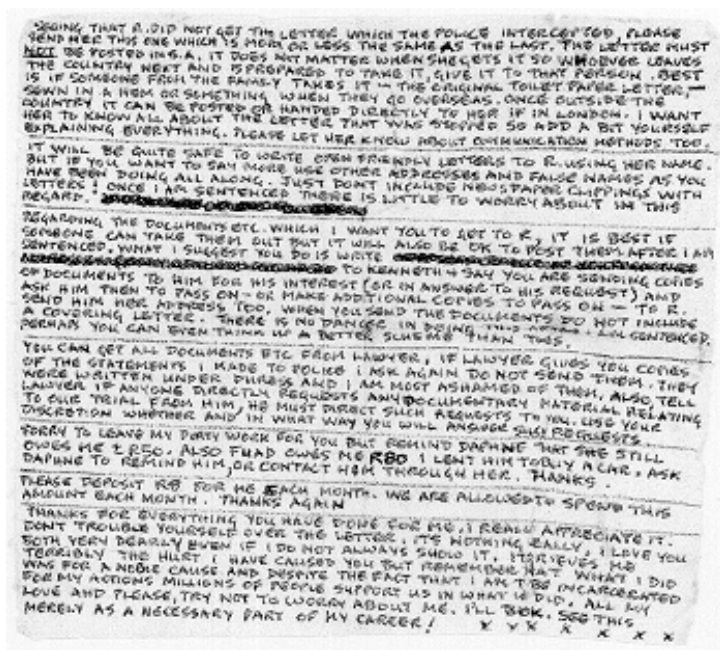 SEEING THAT R. DID NOT GET THE LETTER WHICH THE POLICE INTERCEPTED, PLEASE
SEND HER THIS ONE WHICH IS MORE OR LESS THE SAME AS THE LAST. THE LETTER MUST
NOT BE POSTED IN S.A. IT DOES NOT MATTER WHEN SHE GETS IT SO WHOEVER LEAVES
THE COUNTRY NEXT AND IS PREPARED TO TAKE IT, GIVE IT TO THAT PERSON. BEST
IS IF SOMEONE FROM THE FAMILY TAKES IT — THE ORIGINAL TOILET PAPER LETTER, —
SEWN IN A HEM OR SOMETHING WHEN THEY GO OVERSEAS. ONCE OUTSIDE THE
COUNTRY IT CAN BE POSTED OR HANDED DIRECTLY TO HER IF IN LONDON. I WANT
HER TO KNOW ALL ABOUT THE LETTER THAT WAS STOPPED SO ADD A BIT YOURSELF
EXPLAINING EVERYTHING. PLEASE LET HER KNOW ABOUT COMMUNICATION METHODS TOO.
IT WILL BE QUITE SAFE TO WRITE OPEN FRIENDLY LETTERS TO R. USING HER NAME.
BUT IF YOU WANT TO SAY MORE USE OTHER ADDRESSES AND FALSE NAMES AS YOU
HAVE BEEN DOING ALL ALONG. JUST DONT INCLUDE NEWSPAPER CLIPPINGS WITH
LETTERS! ONCE I AM SENTENCED THERE IS LITTLE TO WORRY ABOUT IN THIS
REGARD.
REGARDING THE DOCUMENTS ETC. WHICH I WANT YOU TO GET TO R, IT IS BEST IF
SOMEONE CAN TAKE THEM OUT BUT IT WILL ALSO BE OK TO POST THEM AFTER I AM
SENTENCED. WHAT I SUGGEST YOU DO IS WRITE
TO KENNETH & SAY YOU ARE SENDING COPIES
OF DOCUMENTS TO HIM FOR HIS INTEREST (OR IN ANSWER TO HIS REQUEST) AND
ASK HIM THEN TO PASS ON — OR MAKE ADDITIONAL COPIES TO PASS ON — TO R.
SEND HIM HER ADDRESS TOO. WHEN YOU SEND THE DOCUMENTS DO NOT INCLUDE
A COVERING LETTER. THERE IS NO DANGER IN DOING THIS I AM SENTENCED.
PERHAPS YOU CAN EVEN THINK UP A BETTER SCHEME THAN THIS.
YOU CAN GET ALL DOCUMENTS ETC FROM LAWYER, IF LAWYER GIVES YOU COPIES
OF THE STATEMENTS I MADE TO POLICE I ASK AGAIN DO NOT SEND THEM. THEY
WERE WRITTEN UNDER DURESS AND I AM MOST ASHAMED OF THEM. ALSO, TELL
LAWYER IF ANYONE DIRECTLY REQUESTS ANY DOCUMENTARY MATERIAL RELATING
TO OUR TRIAL FROM HIM, HE MUST DIRECT SUCH REQUESTS TO YOU. USE YOUR
DISCRETION WHETHER AND IN WHAT WAY YOU WILL ANSWER SUCH REQUESTS.
SORRY TO LEAVE MY DIRTY WORK FOR YOU BUT REMIND DAPHNE THAT SHE STILL
OWES ME ± R50. ALSO FUAD OWES ME R80 I LENT HIM TO BUY A CAR. ASK
DAPHNE TO REMIND HIM, OR CONTACT HIM THROUGH HER. THANKS.
PLEASE DEPOSIT R8 FOR ME EACH MONTH. WE ARE ALLOWED TO SPEND THIS
AMOUNT EACH MONTH. THANKS AGAIN
THANKS FOR EVERYTHING YOU HAVE DONE FOR ME. I REALLY APPRECIATE IT.
DONT TROUBLE YOURSELF OVER THE LETTER. ITS NOTHING REALLY. I LOVE YOU
BOTH VERY DEARLY EVEN IF I DO NOT ALWAYS SHOW IT. IT GRIEVES ME
TERRIBLY THE HURT I HAVE CAUSED YOU BUT REMEMBER THAT WHAT I DID
WAS FOR A NOBLE CAUSE AND DESPITE THE FACT THAT I AM T'BE INCARCERATED
FOR MY ACTIONS MILLIONS OF PEOPLE SUPPORT US IN WHAT WE DID. ALL MY
LOVE AND PLEASE, TRY NOT TO WORRY ABOUT ME. I'LL B OK. SEE THIS
MERELY AS A NECESSARY PART OF MY CAREER! X X X X X X X